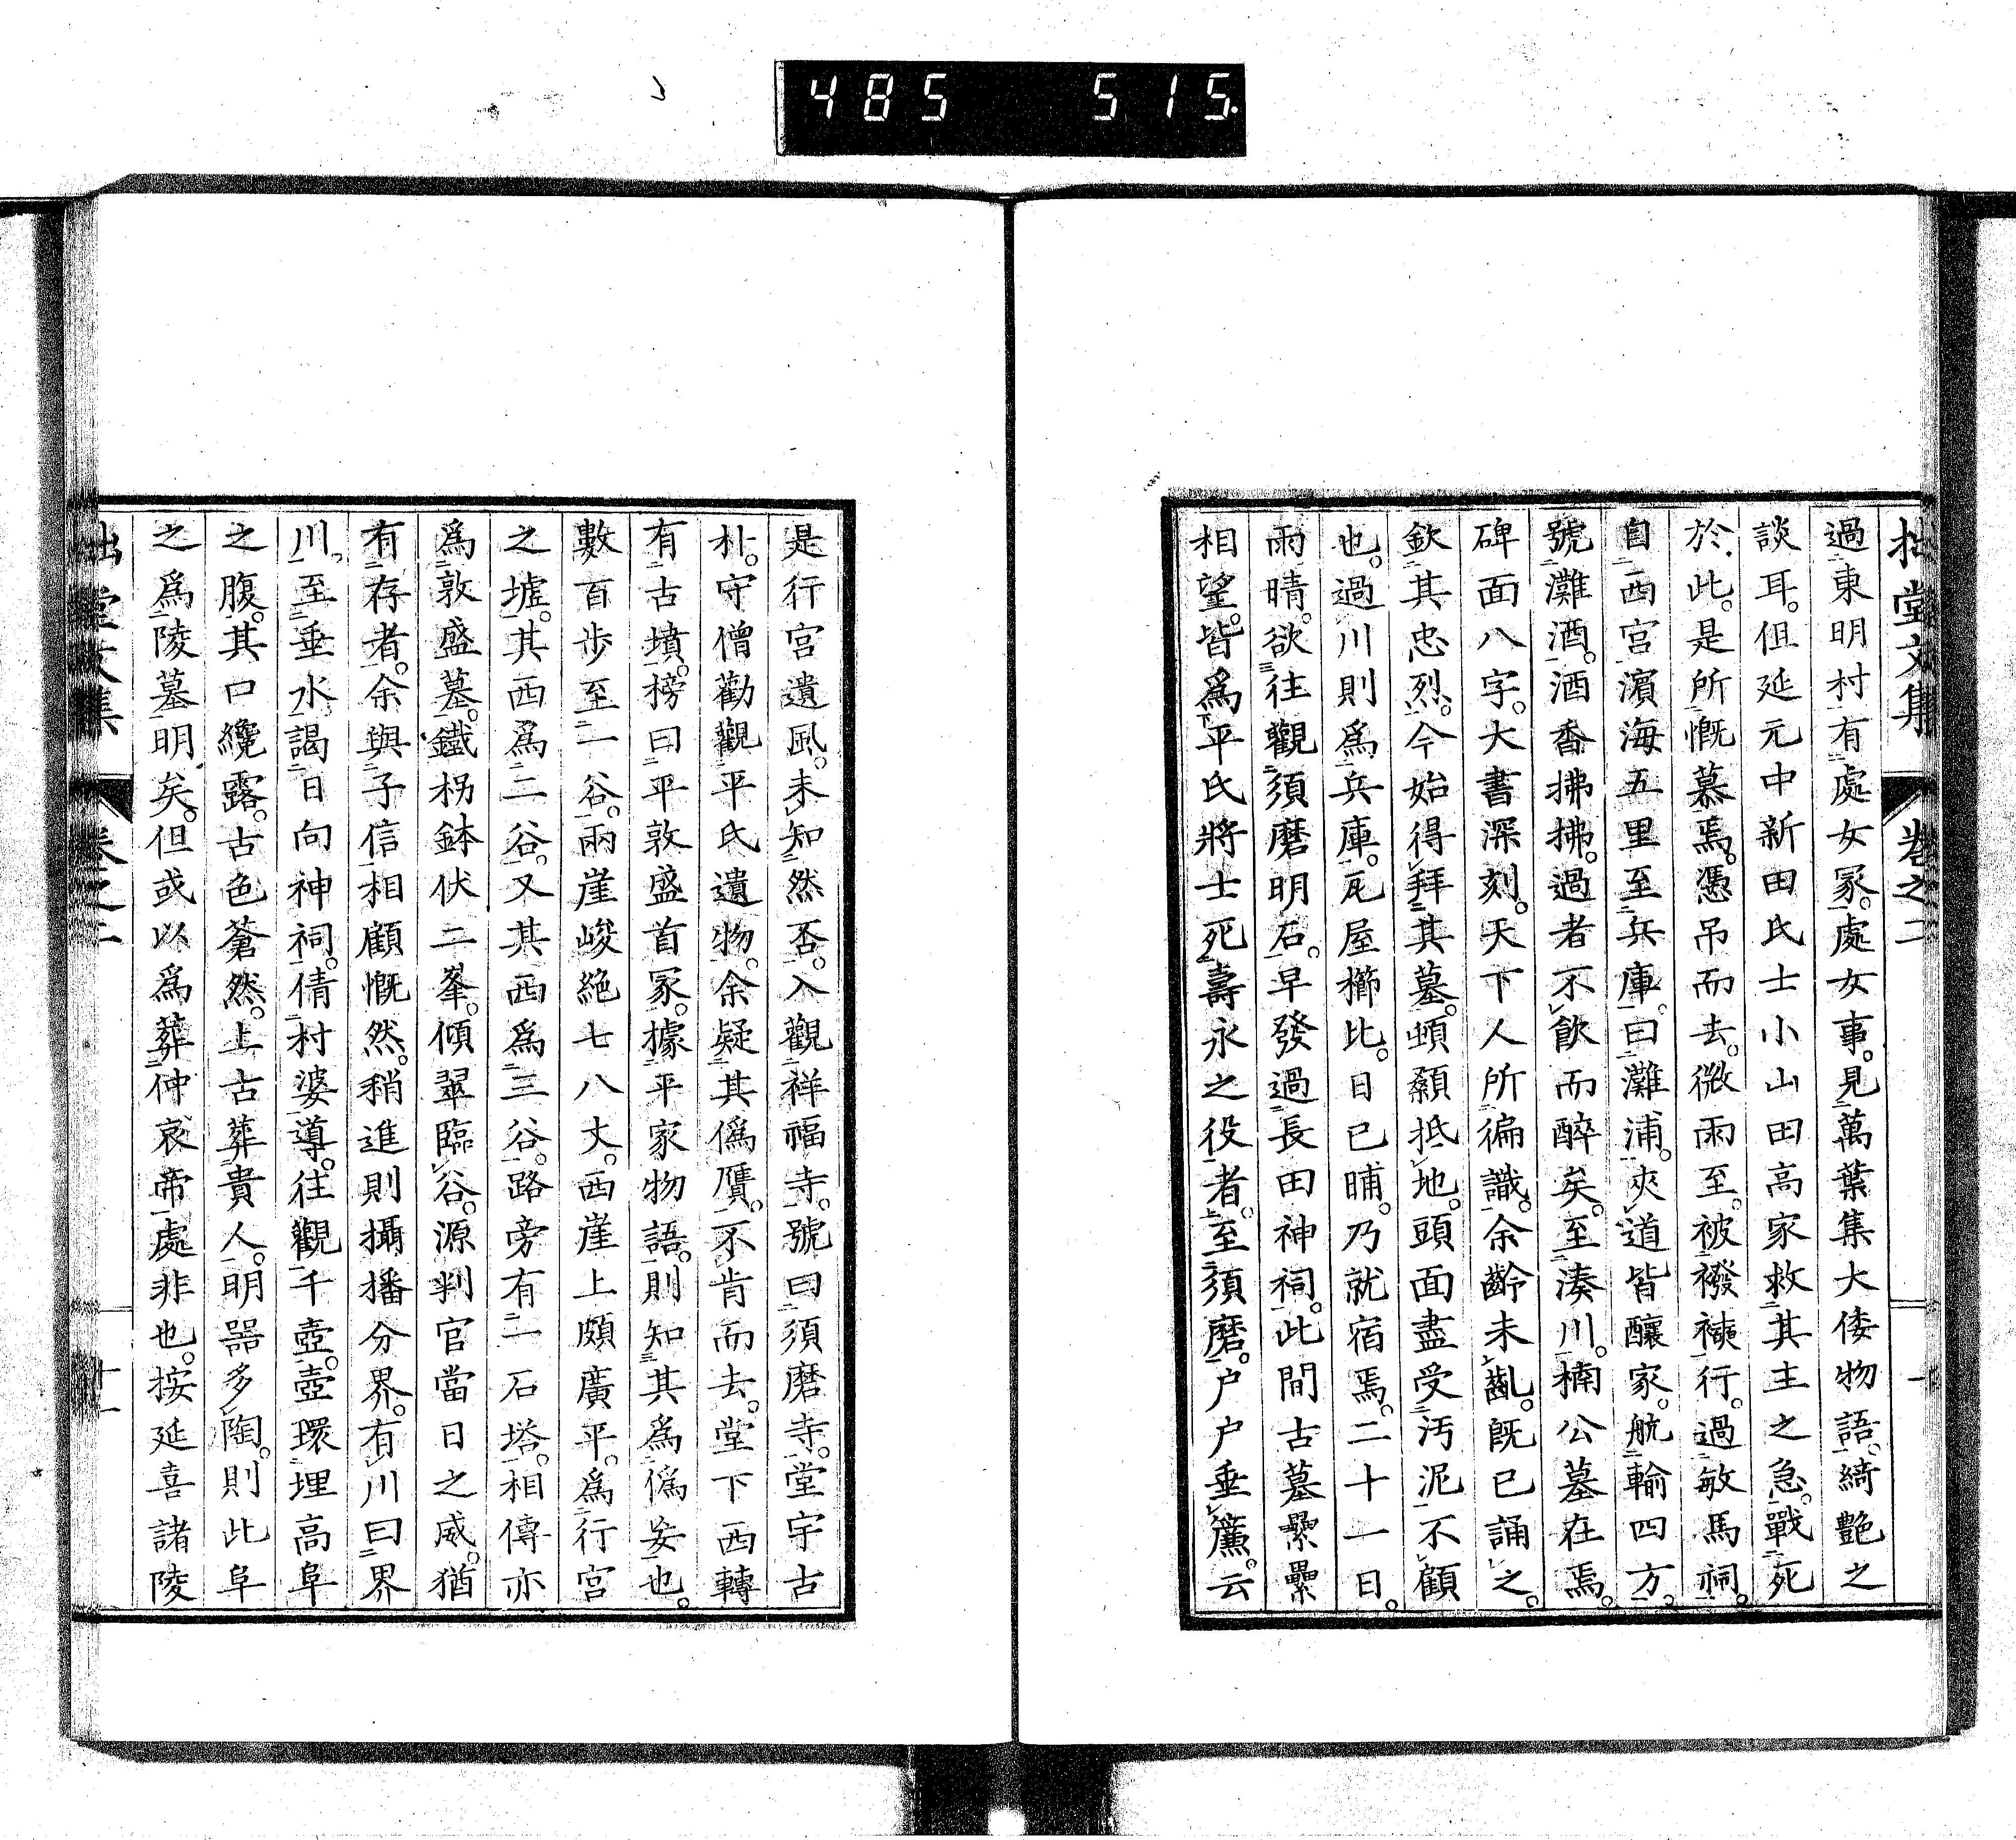 485 515.
拙堂文集 卷之二
過東明村有處女冢。處女事。見萬葉集大倭物語。綺艷之
談耳。但延元中新田氏士小山田高家救其主之急。戰死
於此。是所慨慕焉。憑吊而去。微雨至。被襏襫行。過敏馬祠。
自西宮濵海五里至兵庫。曰灘浦。夾道皆釀家。航輸四方。
號灘酒。酒香拂拂。過者不飲而醉矣。至湊川。楠公墓在焉。
碑面八字。大書深刻。天下人所徧識。余齡未齔。既已誦之。
欽其忠烈。今始得拜其墓。頓顙抵地。頭面盡受汚泥不顧
也。過川則爲兵庫。瓦屋櫛比。日已晡。乃就宿焉。二十一日。
雨晴。欲往觀須磨明石。早發過長田神祠。此間古墓纍纍
相望。皆爲平氏將士死壽永之役者。至須磨。戶戶垂簾。云
是行宮遺風。未知然否。入觀祥福寺。號曰須磨寺。堂宇古
朴。守僧勸觀平氏遺物。余疑其僞贋。不肯而去。堂下西轉
有古墳。榜曰平敦盛首冢。據平家物語。則知其爲僞妄也。
數百步至一谷。兩崖峻絶七八丈。西崖上頗廣平。爲行宮
之墟。其西爲二谷。又其西爲三谷。路旁有一石塔。相傳亦
爲敦盛墓。鐵柺鉢伏二峯。傾翠臨谷。源判官當日之威。猶
有存者。余與子信相顧慨然。稍進則攝播分界。有川曰界
川。至垂水謁日向神祠。倩村婆導。往觀千壺。壺環埋高阜
之腹。其口纔露。古色蒼然。上古葬貴人。明器多陶。則此阜
之爲陵墓明矣。但或以爲葬仲哀帝處非也。按延喜諸陵
拙堂文集 卷之二 十一